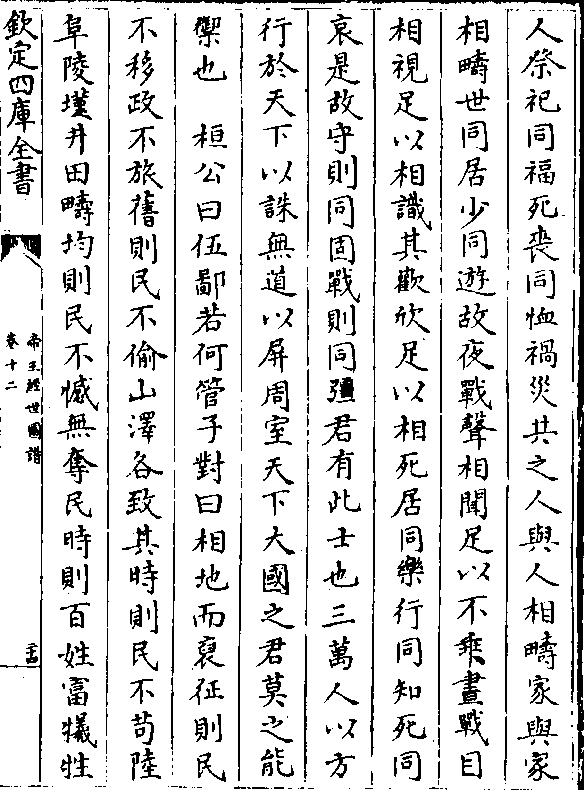 人祭祀同福死喪同恤禍災共之人與人相疇家與家
相疇世同居少同遊故夜戰聲相聞足以不乘晝戰目
相視足以相識其歡欣足以相死居同樂行同知死同
哀是故守則同固戰則同彊君有此士也三萬人以方
行於天下以誅無道以屏周室天下大國之君莫之能
禦也　桓公曰伍鄙若何管子對曰相地而衰征則民
不移政不旅舊則民不偷山澤各致其時則民不苟陸
阜陵墐井田疇均則民不憾無奪民時則百姓富犧牲
欽定四庫全書
帝王經世圖譜
卷十二